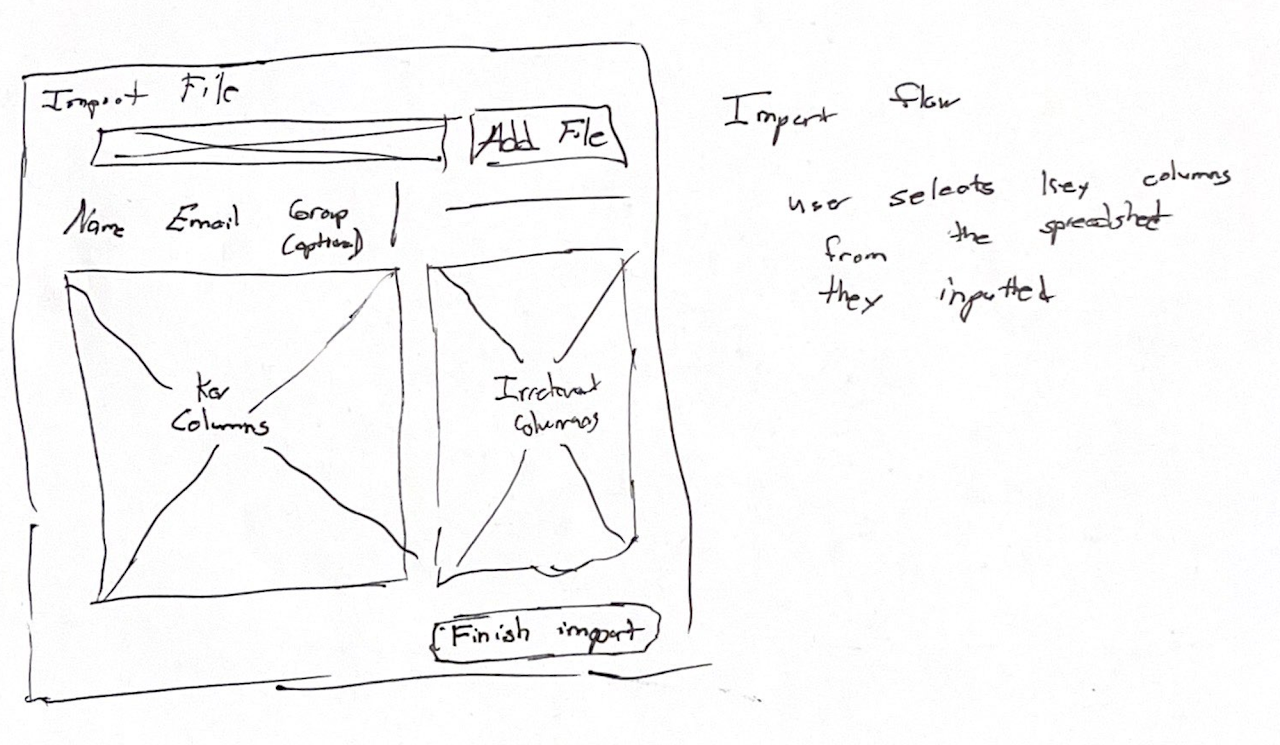 Import File
Add File
Name Email Group
(optional)
Key
Columns
Irrelevant
Columns
Finish import
Import flow
user selects key columns
from the spreadsheet
they inputted